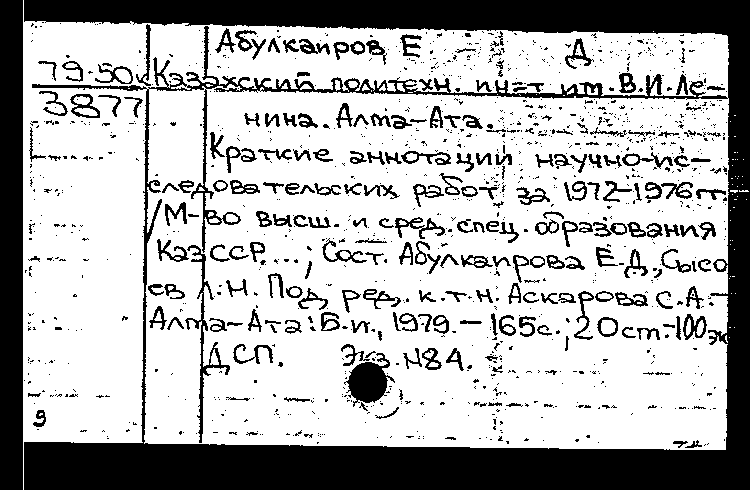 Абулкаиров Е. Д
79-50к Казахский политехн. ин-т им. В.И. Ле-
3877 нина. Алма-Ата.
Краткие аннотации научно-ис-
следовательских работ за 1972-1976гг.
/М-во высш. и сред. спец. образования
КазССР....; Сост. Абулкаирова Е.Д., Сысо
ев Л.Н. Под ред. к.т.н. Аскарова С.А.-
Алма-Ата: Б.и., 1979. - 165с.; 20см.-100эк
ДСП. Экз. N84.
9